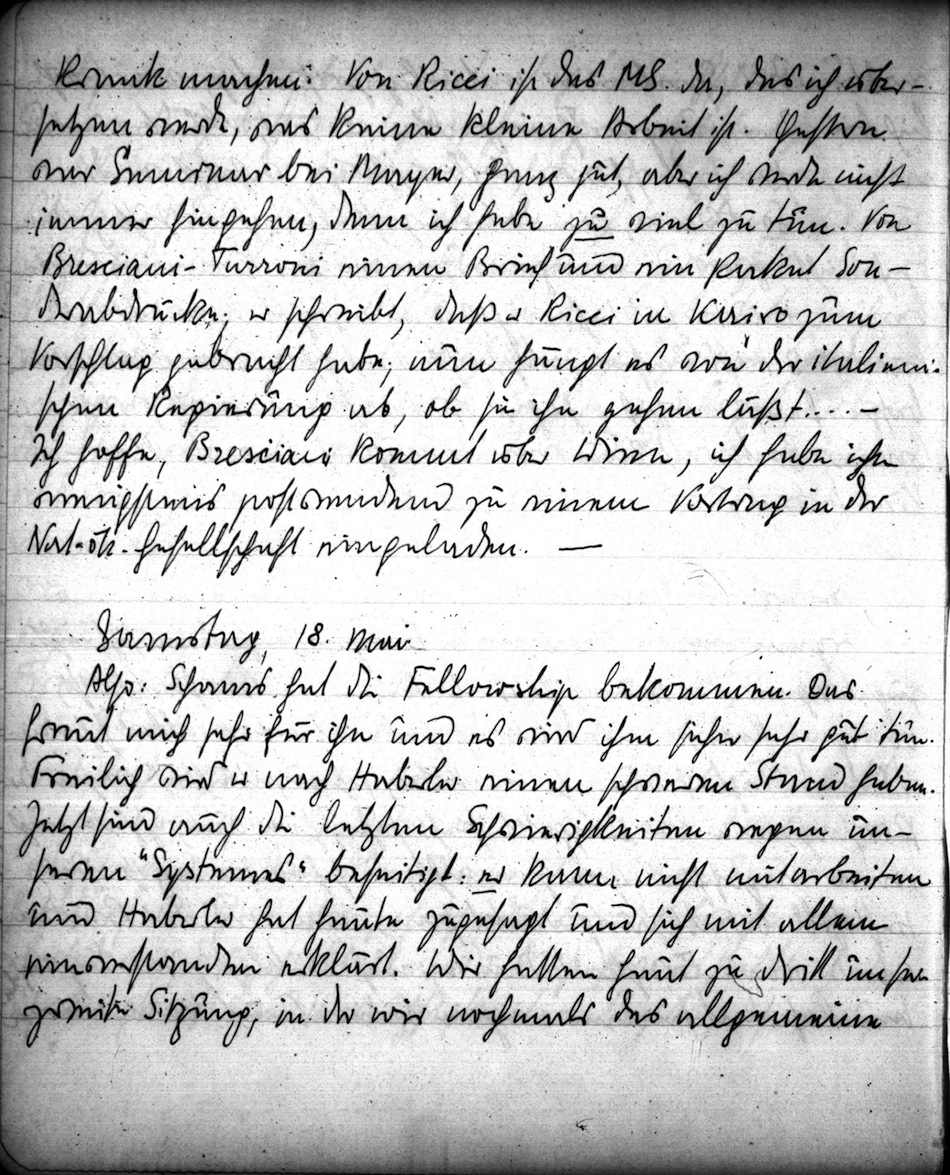 krank machen: Von Ricci ist das MS. da, das ich über-
setzen werde, was keine kleine Arbeit ist. Gestern
war Seminar bei Mayer, ganz gut, aber ich werde nicht
immer hingehen, denn ich habe zu viel zu tun. Von
Bresciani-Turroni einen Brief und ein Paket Son-
derabdrücke; er schreibt, daß er Ricci in Kairo zum
Vorschlag gebracht habe; nun hängt es von der italieni-
schen Regierung ab, ob sie ihn gehen läßt.... –
Ich hoffe, Bresciani kommt über Wien, ich habe ihn
wenigstens postwendend zu einem Vortrag in der
Nat.-ök. Gesellschaft eingeladen. —
Samstag, 18. Mai
Also: Schams hat die Fellowship bekommen. Das
freut mich sehr für ihn und es wird ihm sicher sehr gut tun.
Freilich wird er nach Haberler einen schweren Stand haben.
Jetzt sind auch die letzten Schwierigkeiten wegen un-
seren "Systemes" beseitigt: er kann nicht mitarbeiten
und Haberler hat heute zugesagt und sich mit allem
einverstanden erklärt. Wir hatten heut zu dritt unsere
zweite Sitzung, in der wir nochmals das allgemeine